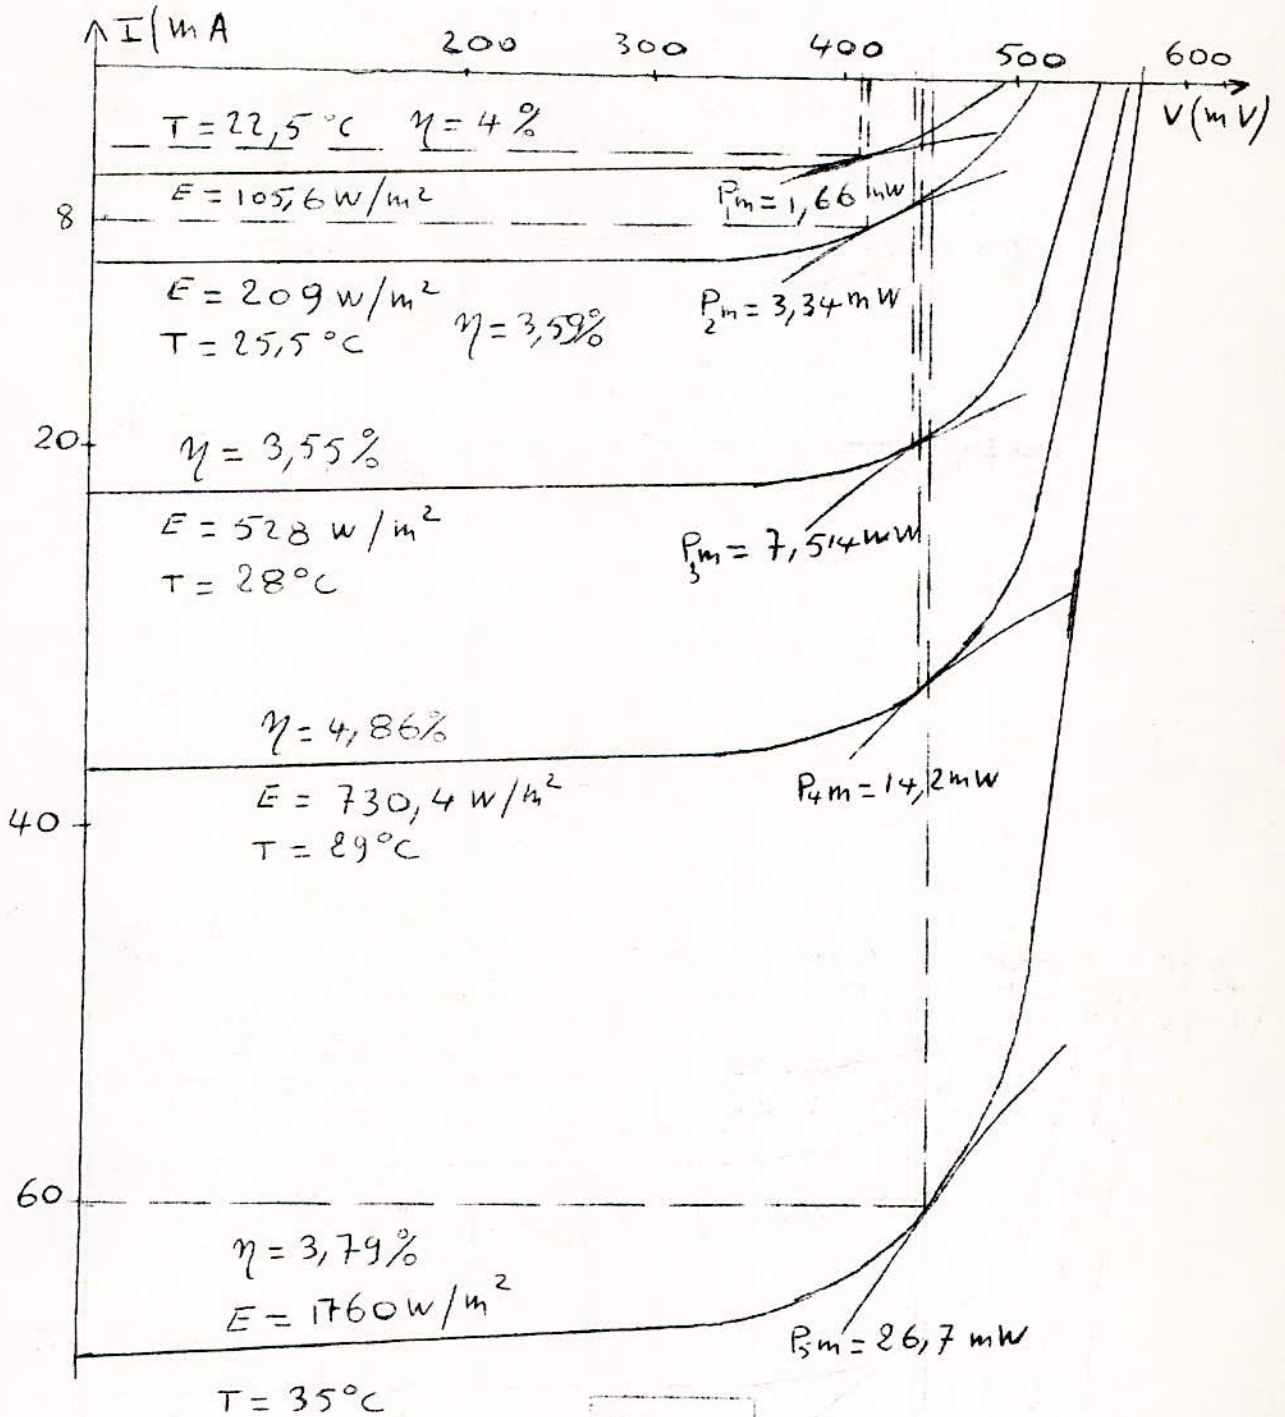 I(mA
200 300 400 500 600
V(mV)
T = 22,5°C η = 4%
E = 105,6 W/m²
P1m = 1,66 mW
8
E = 209 W/m²
T = 25,5°C η = 3,59%
P2m = 3,34 mW
20
η = 3,55%
E = 528 W/m²
T = 28°C
P3m = 7,514 mW
η = 4,86%
E = 730,4 W/m²
T = 29°C
P4m = 14,2 mW
40
60
η = 3,79%
E = 1760 W/m²
P5m = 26,7 mW
T = 35°C